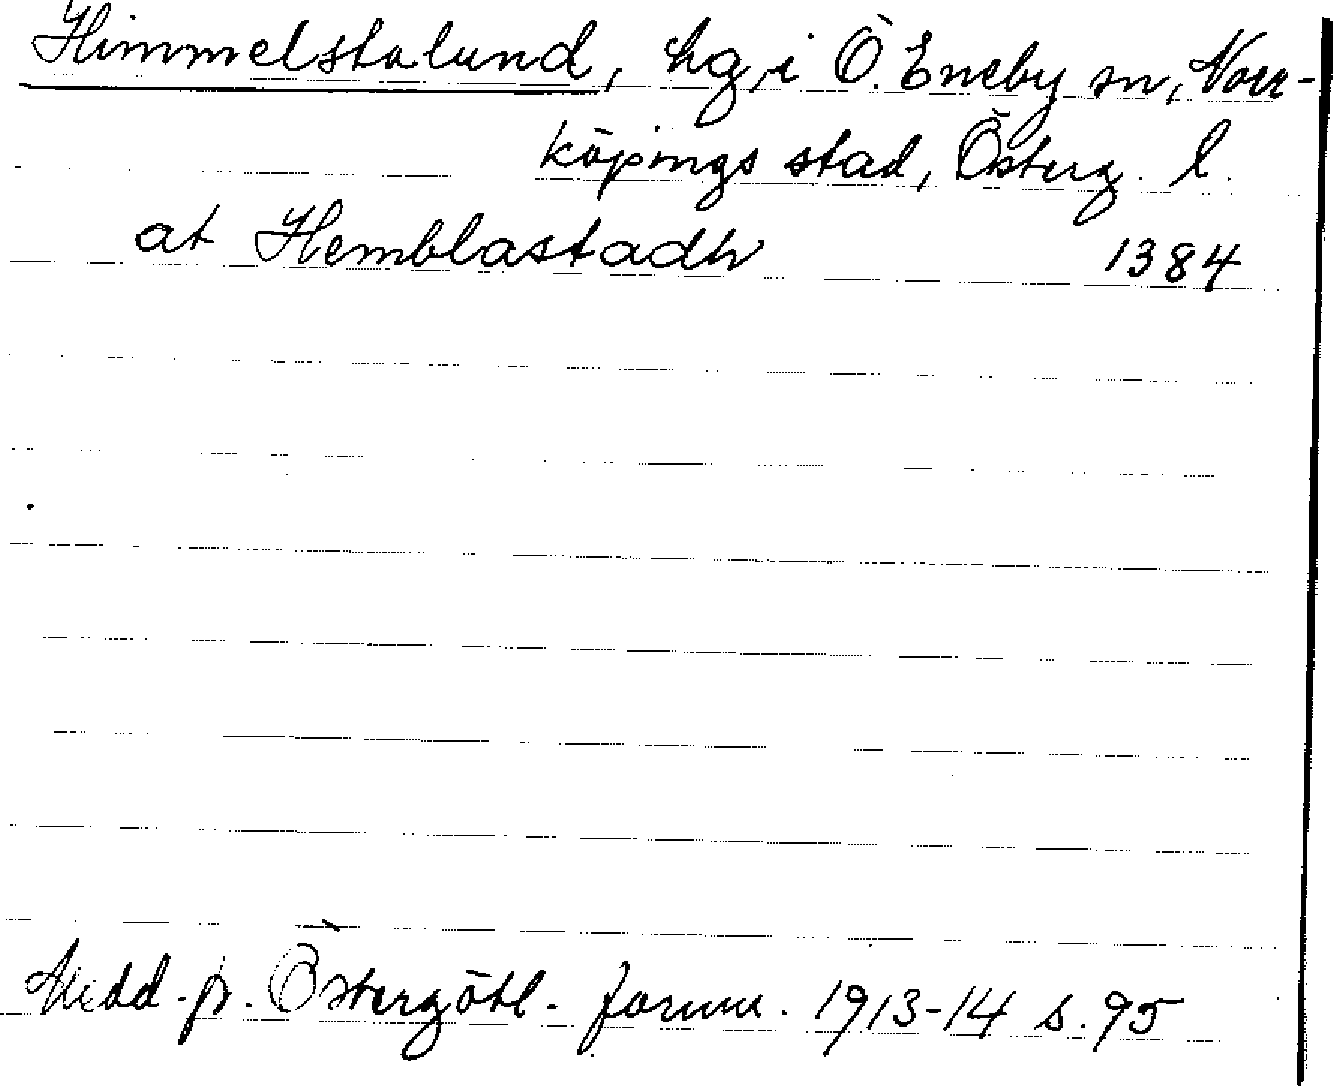 Himmelstalund, hg, i Ö. Eneby sn, Norr-
köpings stad, Österg. l.
at Hemblastadh 1384
Medd. fr. Östergötl. fornm. 1913-14 s. 95